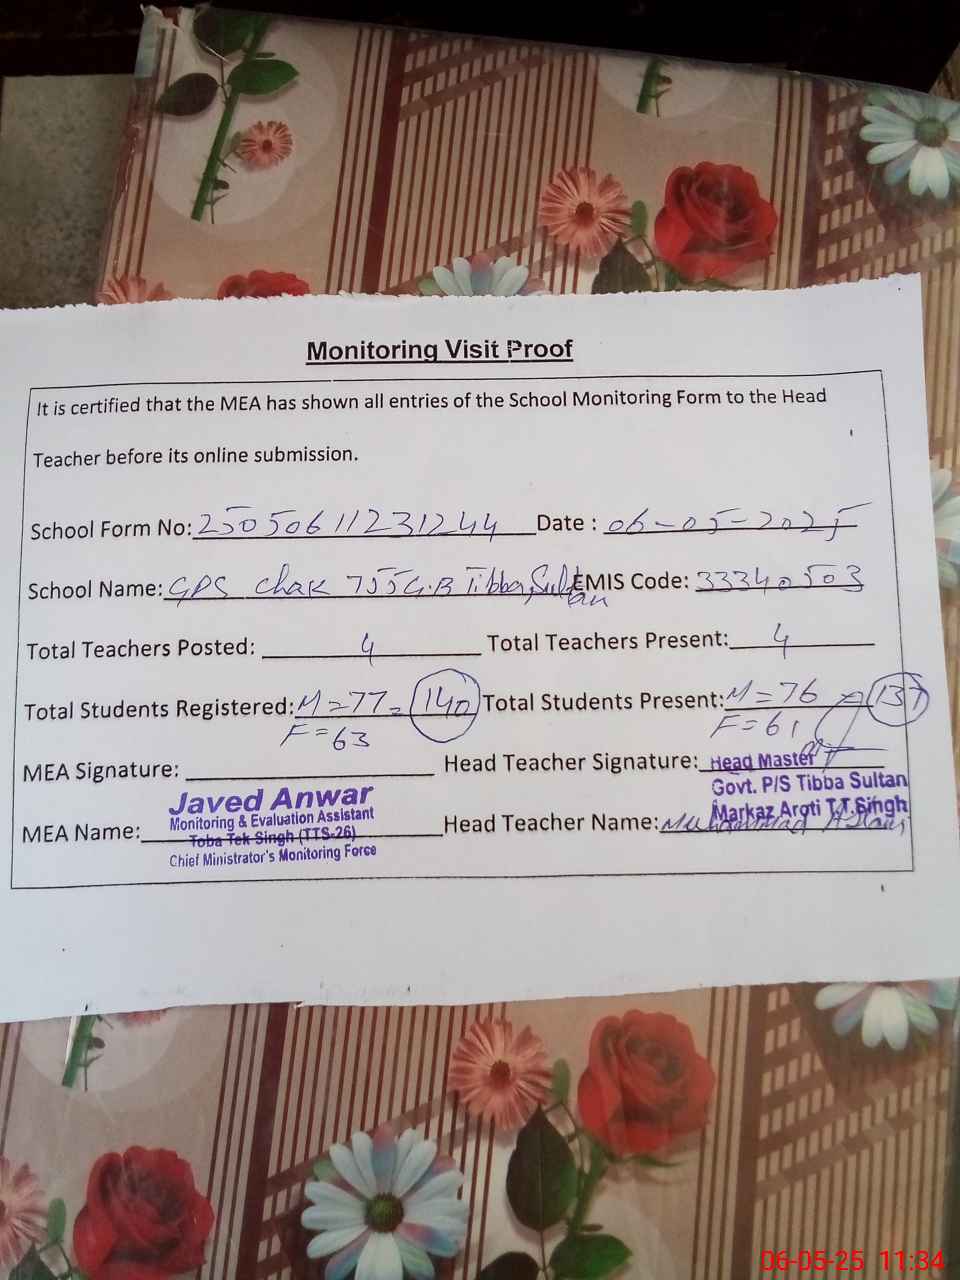 Monitoring Visit Proof
It is certified that the MEA has shown all entries of the School Monitoring Form to the Head
Teacher before its online submission.
School Form No: 25050611231244 Date : 06-05-2025
School Name: GPS Chak 755 G.B Tibba Sultan EMIS Code: 33340503
Total Teachers Posted: 4 Total Teachers Present: 4
Total Students Registered: M=77 = 140 Total Students Present: M=76 = 137
F=63 F=61
MEA Signature: Head Teacher Signature: Head Master
Javed Anwar Govt. P/S Tibba Sultan
Monitoring & Evaluation Assistant Markaz Aroti T.T.Singh
MEA Name: Toba Tek Singh (TTS-26) Head Teacher Name: Muhammad Aslam
Chief Minister's Monitoring Force
06-05-25 11:34